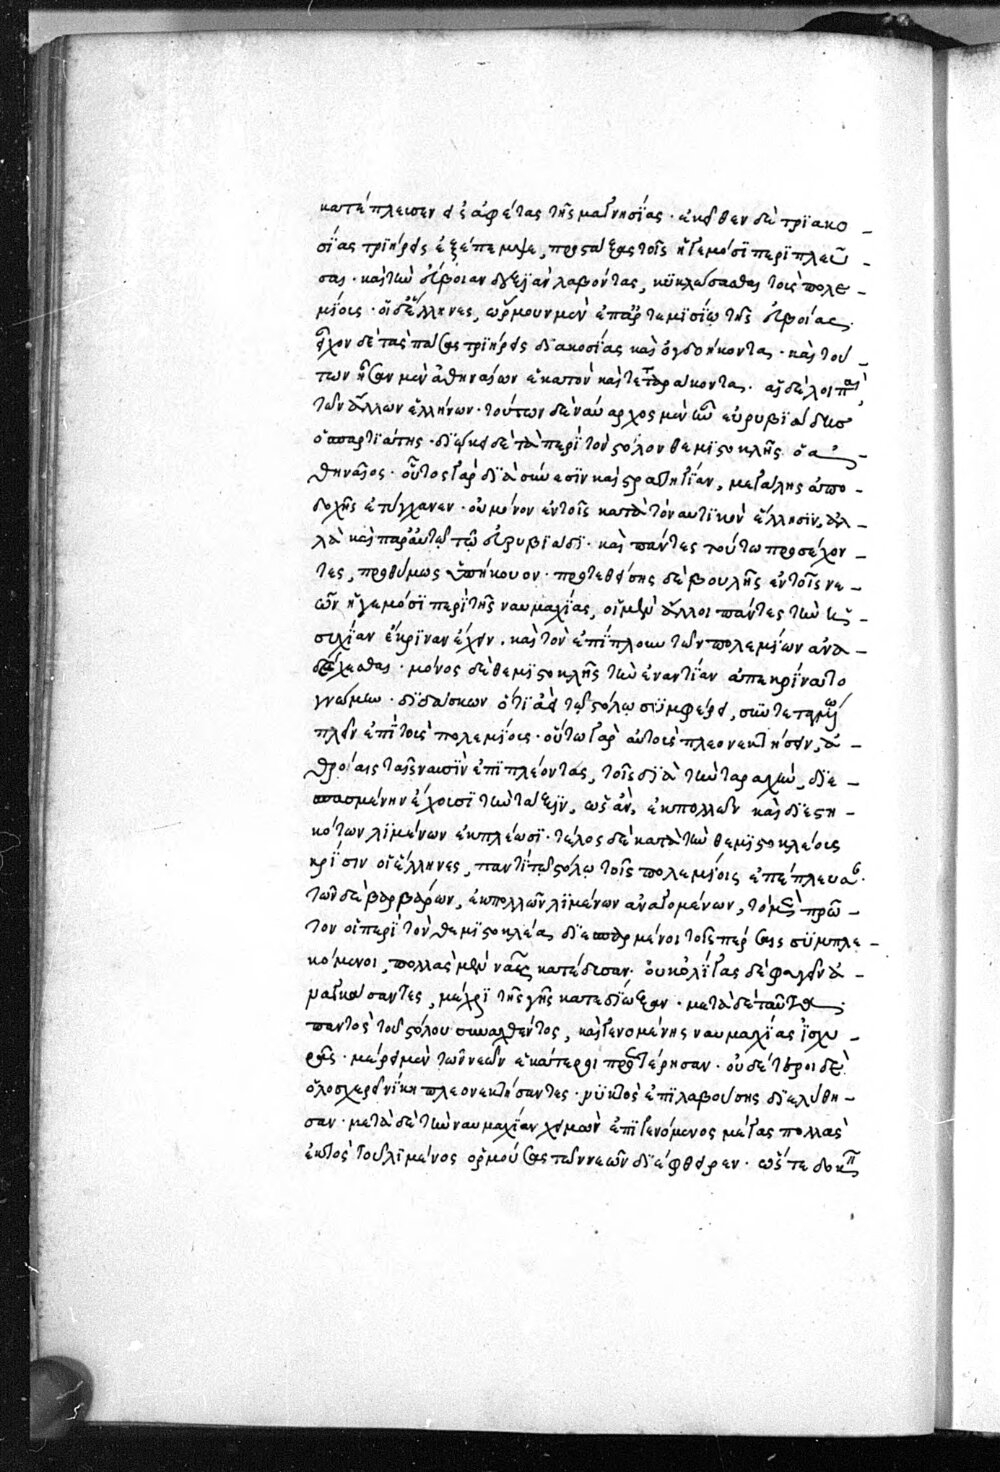 κατέπλευσεν εἰς ἀφέτας τῆς μαγνησίας · ἐκεῖθεν δὲ τριακο
σίας τριήρεις ἐξέπεμψε, προστάξας τοῖς ἡγεμόσι περιπλεῦ
σαι · καὶ τὴν εὔβοιαν δεξιὰν λαβόντας, κυκλώσασθαι τοὺς πολε
μίους · οἱ δὲ ἕλληνες, ὥρμουν μὲν ἐπ' ἀρτεμισίῳ τῆς εὐβοίας ·
εἶχον δὲ τὰς πάσας τριήρεις διακοσίας καὶ ὀγδοήκοντα · καὶ τού
των ἦσαν μὲν ἀθηναίων ἑκατὸν καὶ τετταράκοντα · αἱ δὲ λοιπαὶ,
τῶν ἄλλων ἑλλήνων · τούτων δὲ ναύαρχος μὲν ἦν εὐρυβιάδης
ὁ σπαρτιάτης · διῴκει δὲ τὰ περὶ τὸν στόλον θεμιστοκλῆς ὁ ἀ
θηναῖος · οὗτος γὰρ διὰ σύνεσιν καὶ στρατηγίαν, μεγάλης ἀπο
δοχῆς ἐτύγχανεν · οὐ μόνον ἐν τοῖς κατὰ τὸ ναυτικὸν ἕλλησιν, ἀλ
λὰ καὶ παρ' αὐτῷ τῷ εὐρυβιάδῃ · καὶ πάντες τούτῳ προσέχον
τες, προθύμως ὑπήκουον · προτεθείσης δὲ βουλῆς ἐν τοῖς νε
ῶν ἡγεμόσι περὶ τῆς ναυμαχίας, οἱ μὲν ἄλλοι πάντες τὴν ἡ
συχίαν ἔκριναν ἔχειν · καὶ τὸν ἐπίπλουν τῶν πολεμίων ἀνα
δέχεσθαι · μόνος δὲ θεμιστοκλῆς τὴν ἐναντίαν ἀπεκρίνατο
γνώμην · διδάσκων ὅτι τῷ στόλῳ συμφέρει, συντεταγμένῳ
πλεῖν ἐπὶ τοὺς πολεμίους · οὕτω γὰρ αὐτοὺς πλεονεκτήσειν, ἀ
θρόαις ταῖς ναυσὶν ἐπιπλέοντας, τοῖς διὰ τὴν ταραχὴν, διε
σπασμένην ἔχουσι τὴν τάξιν, ὡς ἂν, ἐκ πολλῶν καὶ διεστη
κότων λιμένων ἐκπλέωσι · τέλος δὲ κατὰ τὴν θεμιστοκλέους
κρίσιν οἱ ἕλληνες, παντὶ τῷ στόλῳ τοῖς πολεμίοις ἐπέπλευσαν ·
τῶν δὲ βαρβάρων, ἐκ πολλῶν λιμένων ἀναγομένων, τὸ μὲν πρῶ
τον οἱ περὶ τὸν θεμιστοκλέα, διεσπαρμένοις τοῖς πέρσαις συμπλε
κόμενοι, πολλὰς μὲν ναῦς κατέδυσαν · οὐκ ὀλίγας δὲ φυγεῖν ἀ
ναγκάσαντες, μέχρι τῆς γῆς κατεδίωξαν · μετὰ δὲ ταῦτα
παντὸς τοῦ στόλου συναχθέντος, καὶ γενομένης ναυμαχίας ἰσχυ
ρᾶς · μέρει μὲν τῶν νεῶν ἑκάτεροι προετέρησαν · οὐδέτεροι δὲ
ὁλοσχερεῖ νίκῃ πλεονεκτήσαντες · νυκτὸς ἐπιλαβούσης διελύθη
σαν · μετὰ δὲ τὴν ναυμαχίαν χειμὼν ἐπιγενόμενος μέγας πολλὰς
ἐκτὸς τοῦ λιμένος ὁρμούσας τῶν νεῶν διέφθειρεν · ὥστε δοκεῖν